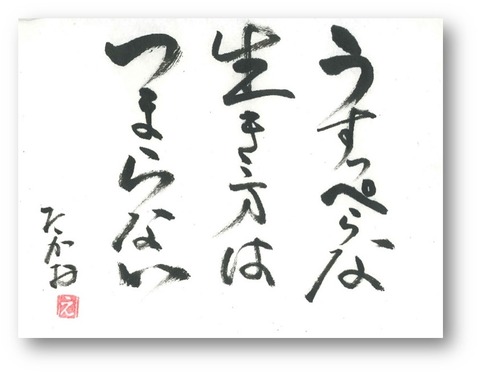 うすっぺらな
生き方は
つまらない
たかお
え